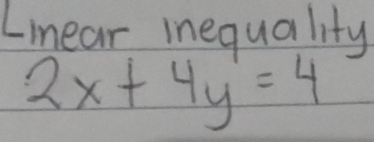 Linear inequality
2x + 4y = 4